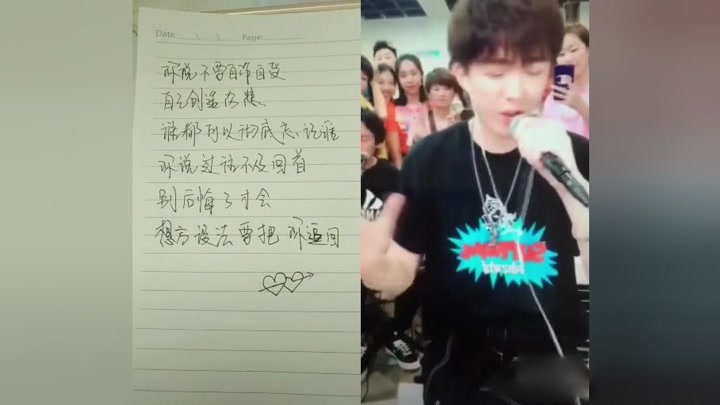 Date: \ \ Page:
你说不要自作自受
自己创造
谁都可以彻底忘记谁
你说过话不及回首
别后悔了才会
想方设法要把你追回